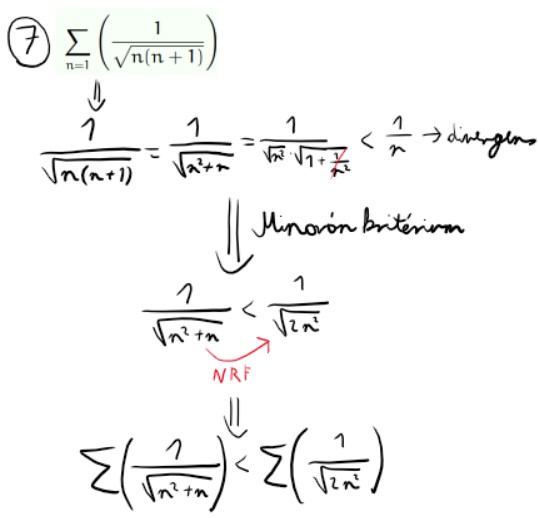 7 \sum_{n=1} \left( \frac{1}{\sqrt{n(n+1)}} \right)
⇓
\frac{1}{\sqrt{n(n+1)}} = \frac{1}{\sqrt{n^2+n}} = \frac{1}{\sqrt{n^2} \cdot \sqrt{1+\frac{n}{n^2}}} < \frac{1}{n} → divergens
⇓ Minoráns kritérium
\frac{1}{\sqrt{n^2+n}} < \frac{1}{\sqrt{2n^2}}
NRF
⇓
\sum \left( \frac{1}{\sqrt{n^2+n}} \right) < \sum \left( \frac{1}{\sqrt{2n^2}} \right)